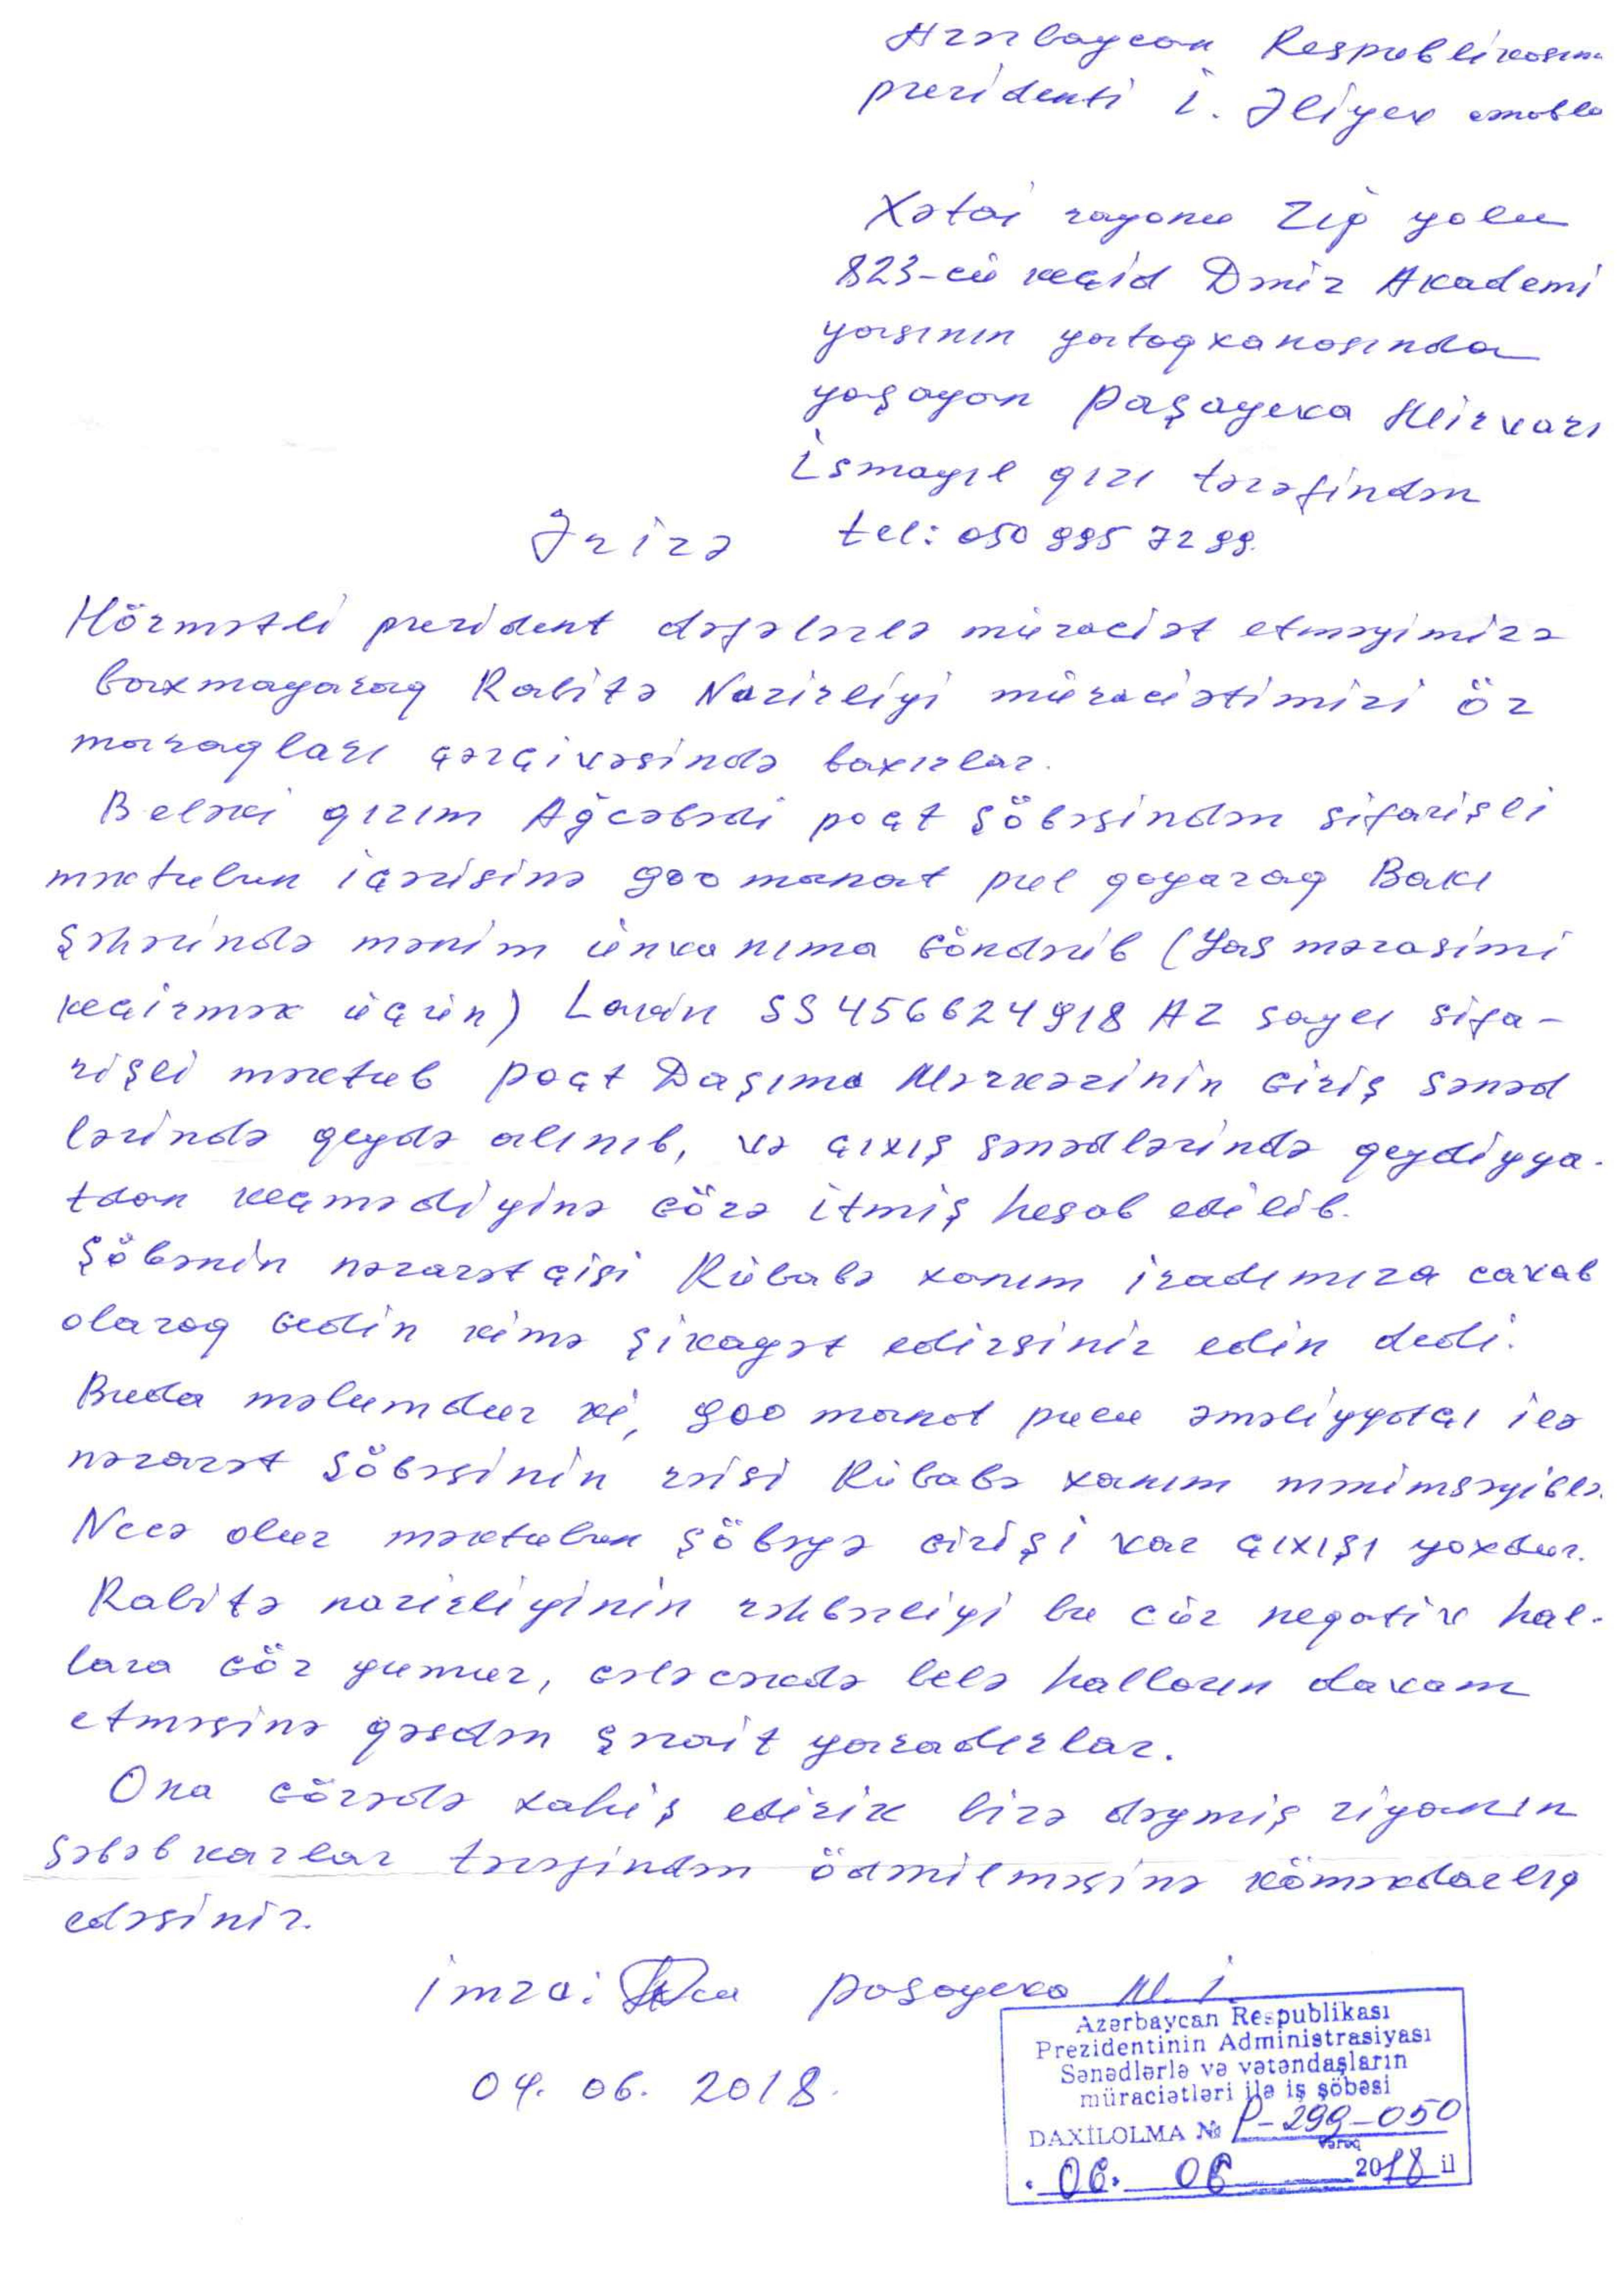 Azərbaycan Respublikasını
prezidenti İ. Əliyev cənabla
Xətai rayonu Zığ yolu
823-cü keçid Dəniz Akademi
yasının yataqxanasında
yaşayan Paşayeva Mirvari
İsmayıl qızı tərəfindən
tel: 050 995 72 99.
Ərizə
Hörmətli prezident dəfələrlə müraciət etməyimizə
baxmayaraq Rabitə Nazirliyi müraciətimizi öz
maraqları çərçivəsində baxırlar.
Beləki qızım Ağcəbədi poçt şöbəsindən sifarişli
məktubun içərisinə 900 manat pul qoyaraq Bakı
şəhərində mənim ünvanıma göndərib (Yas mərasimi
keçirmək üçün) Lakin SS 456624918 AZ saylı sifa-
rişli məktub poçt Daşıma Mərkəzinin giriş sənəd
lərində qeydə alınıb, və çıxış sənədlərində qeydiyya-
tdan keçmədiyinə görə itmiş hesab edilib.
Şöbənin nəzarətçisi Rübabə xanım iradımıza cavab
olaraq gedin kimə şikayət edirsiniz edin dedi.
Buda məlumdur ki, 900 manat pulu əməliyyatçı ilə
nəzarət şöbəsinin rəisi Rübabə xanım mənimsəyiblə.
Necə olur məktubun şöbəyə girişi var çıxışı yoxdur.
Rabitə nazirliyinin rəhbərliyi bu cür neqativ hal-
lara göz yumur, gələcəkdə belə halların davam
etməsinə qəsdən şərait yaradırlar.
Ona görədə xahiş edirik bizə dəymiş ziyanın
səbəbkarlar tərəfindən ödənilməsinə köməkdarlıq
edəsiniz.
imza: Paşayeva M. İ.
04. 06. 2018.
Azərbaycan Respublikası
Prezidentinin Administrasiyası
Sənədlərlə və vətəndaşların
müraciətləri ilə iş şöbəsi
DAXİLOLMA № P-299-050
vərəq
06. 06 2018 il